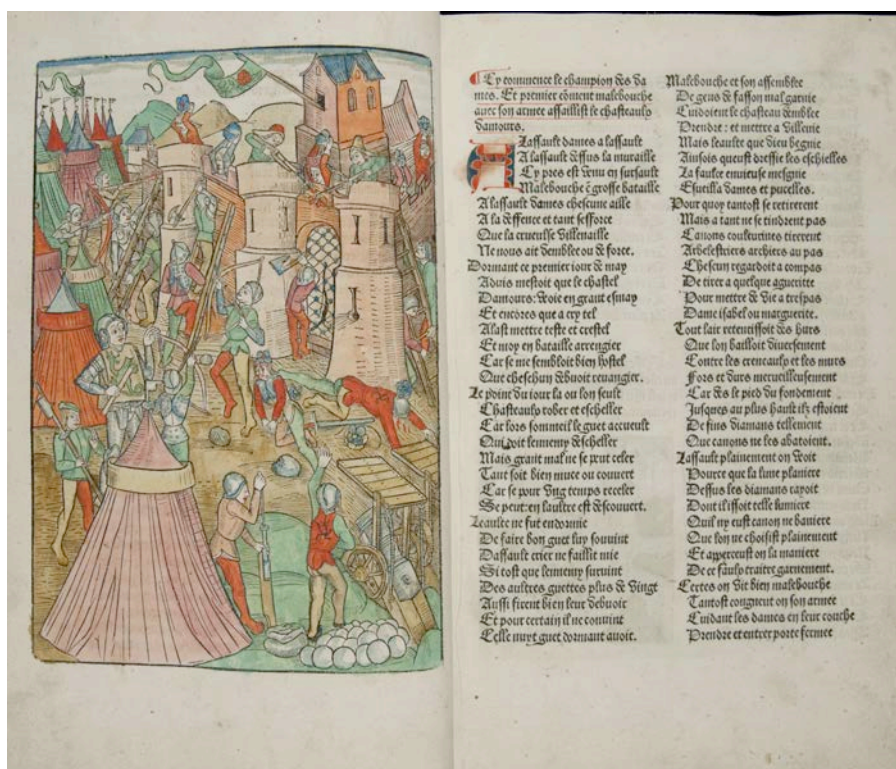 Cy commence le champion des da
mes. Et premier cõment malebouche
auec son armee assaillist le chasteaulx
damours.
A Lassault dames a lassault
A lassault dessus la muraille
Cy pres est venu en sursault
Malebouche ẽ grosse bataille
A lassault dames chescune aille
A la deffence et tant sefforce
Que la crueuse villenaille
Ne nous ait demblee ou de force.
Dormant ce premier iour de may
Aduis mestoit que le chastel
Damours: veoie en grant esmay
Et encores que a cry tel
Alast mettre teste et crestel
Et moy en bataille arrengier
Car se me sembloit bien hostel
Que cheschun debuoit reuangier.
Le point du iour la ou lon seult
Chasteaulx rober et escheller
Car lors sommeil le guet accueult
Qui voit lennemy descheller
Mais grant mal ne se peut celer
Tant soit bien muce ou couuert
Car se pour vng temps receler
Se peut: en laultre est descouuert.
Leaulte ne fut endormie
De faire bon guet luy souuint
Dassault crier ne faillit mie
Si tost que lennemy suruint
Des aultres guettes plus de vingt
Aussi firent bien leur debuoir
Et pour certain il ne conuint
Celle nuyt guet dormant auoir.
Malebouche et son assemblee
De gens de fasson mal garnie
Cuidoient le chasteau demblee
Prendre: et mettre a villenie
Mais leaulte que dieu begnie
Ainsois queust dressie les eschielles
La faulce enuieuse mesgnie
Esueilla dames et pucelles.
Pour quoy tantost se retirerent
Mais a tant ne se tindrent pas
Canons couleurines tirerent
Arbelestriers archiers au pas
Chescun regardoit a compas
De tirer a quelque aguettte
Pour mettre de vie a trespas
Dame isabel ou marguerite.
Tout lair retentissoit des hurs
Que lon bailloit diuersement
Contre les creneaulx et les murs
Fors et durs merueilleusement
Car des le pied du fondement
Jusques au plus hault ilz estoient
De fins diamans tellement
Que canons ne les abatoient.
Lassault plainement on veoit
Pource que la lune planiere
Dessus les diamans rayoit
Dont il issoit telle lumiere
Quil ny eust canon ne baniere
Que lon ne choisist plainement
Et apperceust on la maniere
De ce faulx traitre garnement.
Certes on vit bien malebouche
Tantost congneut on son armee
Cuidant les dames en leur couche
Prendre et entrer porte fermee